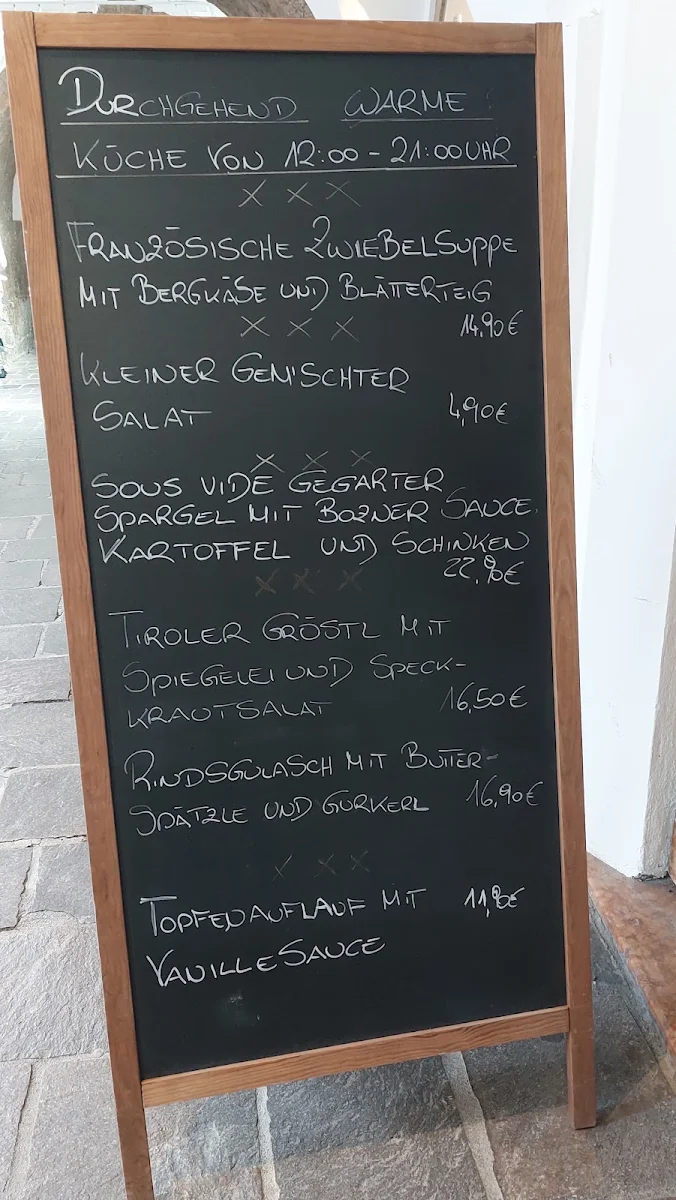 DURCHGEHEND WARME
KÜCHE VON 12:00 - 21:00 UHR
X X X
FRANZÖSISCHE ZWIEBELSUPPE
MIT BERGKÄSE UND BLÄTTERTEIG
X X X 14,90€
KLEINER GEMISCHTER
SALAT 4,90€
X X X
SOUS VIDE GEGARTER
SPARGEL MIT BOZNER SAUCE,
KARTOFFEL UND SCHINKEN
X X X 22,90€
TIROLER GRÖSTL MIT
SPIEGELEI UND SPECK-
KRAUTSALAT 16,50€
RINDSGULASCH MIT BUTTER-
SPÄTZLE UND GURKERL 16,90€
X X X
TOPFENAUFLAUF MIT
VANILLESAUCE